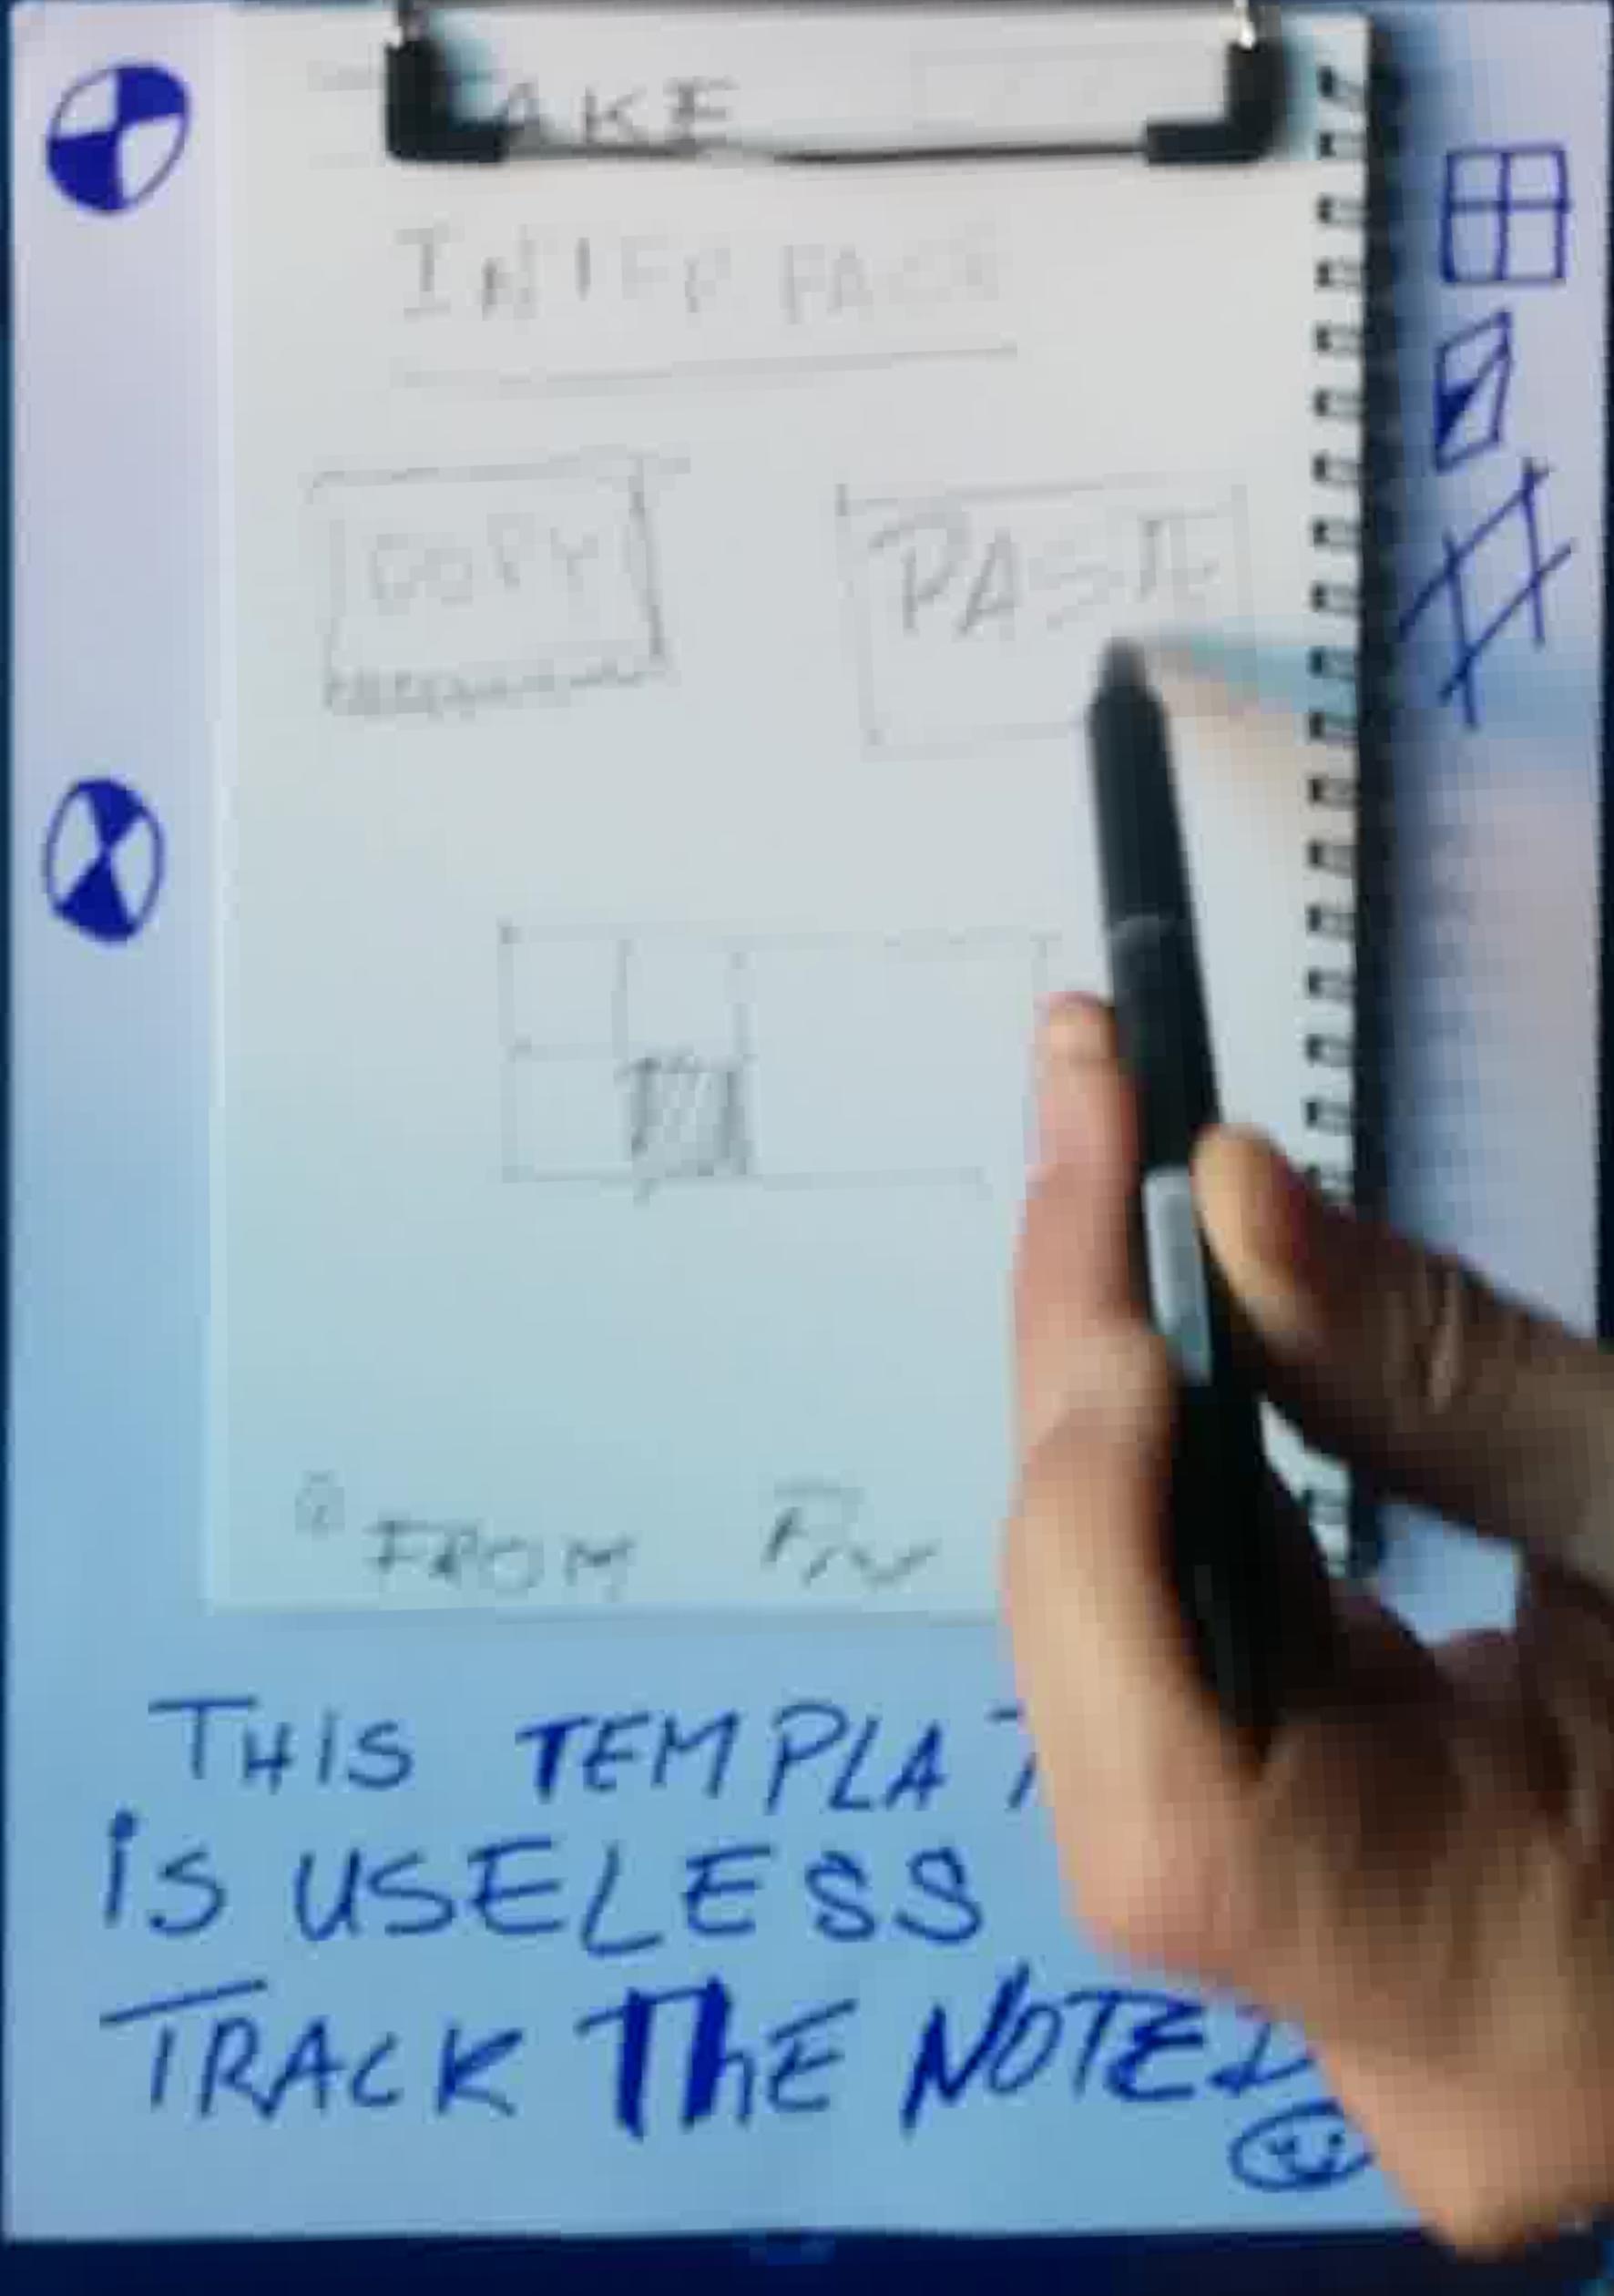 AKE
INTERFACE
COPY
PASTE
FROM
THIS TEMPLAT
is USELESS
TRACK ThE NOTE